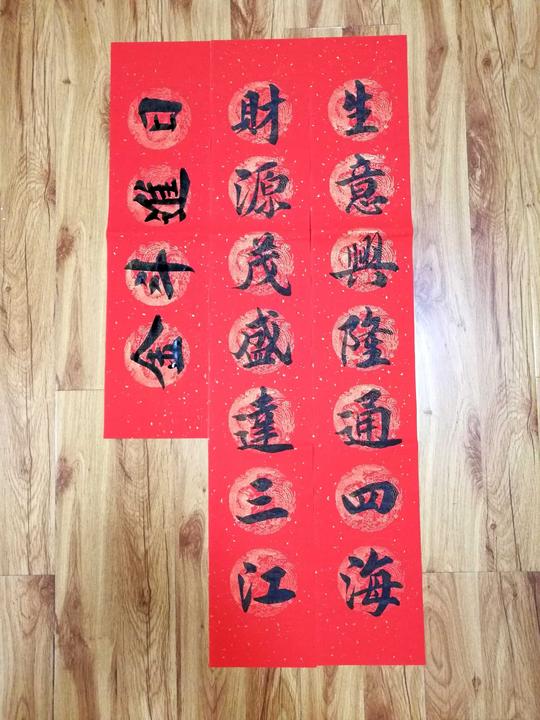 生意興隆通四海
財源茂盛達三江
日進斗金